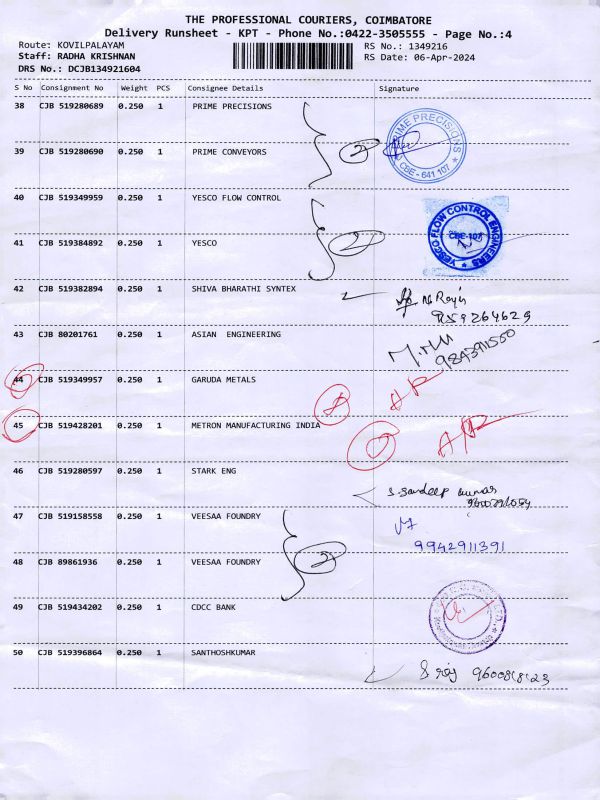 THE PROFESSIONAL COURIERS, COIMBATORE
Delivery Runsheet - KPT - Phone No.:0422-3505555 - Page No.:4
Route: KOVILPALAYAM
RS No.: 1349216
Staff: RADHA KRISHNAN
RS Date: 06-Apr-2024
DRS No.: DCJB134921604
S No Consignment No Weight PCS Consignee Details Signature
38 CJB 519280689 0.250 1 PRIME PRECISIONS
PRIME PRECISIONS
CBE - 641 107
39 CJB 519280690 0.250 1 PRIME CONVEYORS
2
40 CJB 519349959 0.250 1 YESCO FLOW CONTROL
YESCO FLOW CONTROL ENGINEERS
CBE-107
41 CJB 519384892 0.250 1 YESCO
2
42 CJB 519382894 0.250 1 SHIVA BHARATHI SYNTEX
43 CJB 80201761 0.250 1 ASIAN ENGINEERING
44 CJB 519349957 0.250 1 GARUDA METALS
45 CJB 519428201 0.250 1 METRON MANUFACTURING INDIA
46 CJB 519280597 0.250 1 STARK ENG
S. Sandeep Kumar
47 CJB 519158558 0.250 1 VEESAA FOUNDRY
9942911391
48 CJB 89861936 0.250 1 VEESAA FOUNDRY
2
49 CJB 519434202 0.250 1 CDCC BANK
50 CJB 519396864 0.250 1 SANTHOSHKUMAR